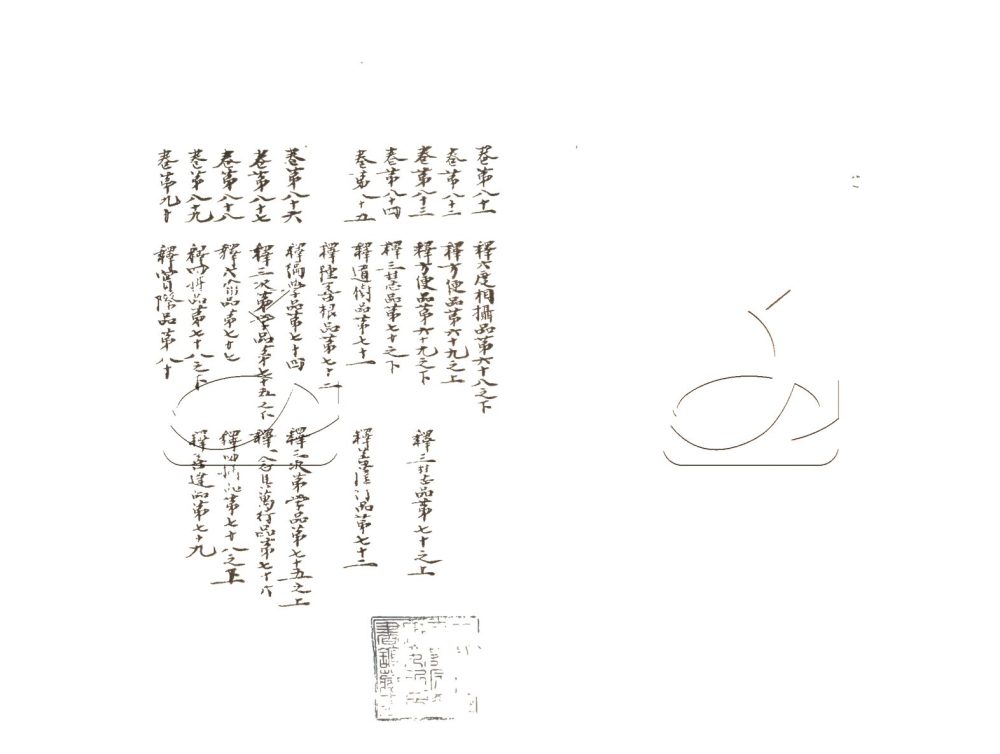 巻第八十一 釋六度相攝品第六十八之下
巻第八十二 釋方便品第六十九之上
巻第八十三 釋方便品第六十九之下 釋三慧品第七十之上
巻第八十四 釋三慧品第七十之下
巻第八十五 釋道樹品第七十一 釋菩薩行品第七十二
釋種善根品第七十三
巻第八十六 釋遍學品第七十四 釋三次第學品第七十五之上
巻第八十七 釋三次第學品第七十五之下 釋一念具萬行品第七十六
巻第八十八 釋六喩品第七十七 釋四攝品第七十八之上
巻第八十九 釋四攝品第七十八之下 釋善達品第七十九
巻第九十 釋實際品第八十